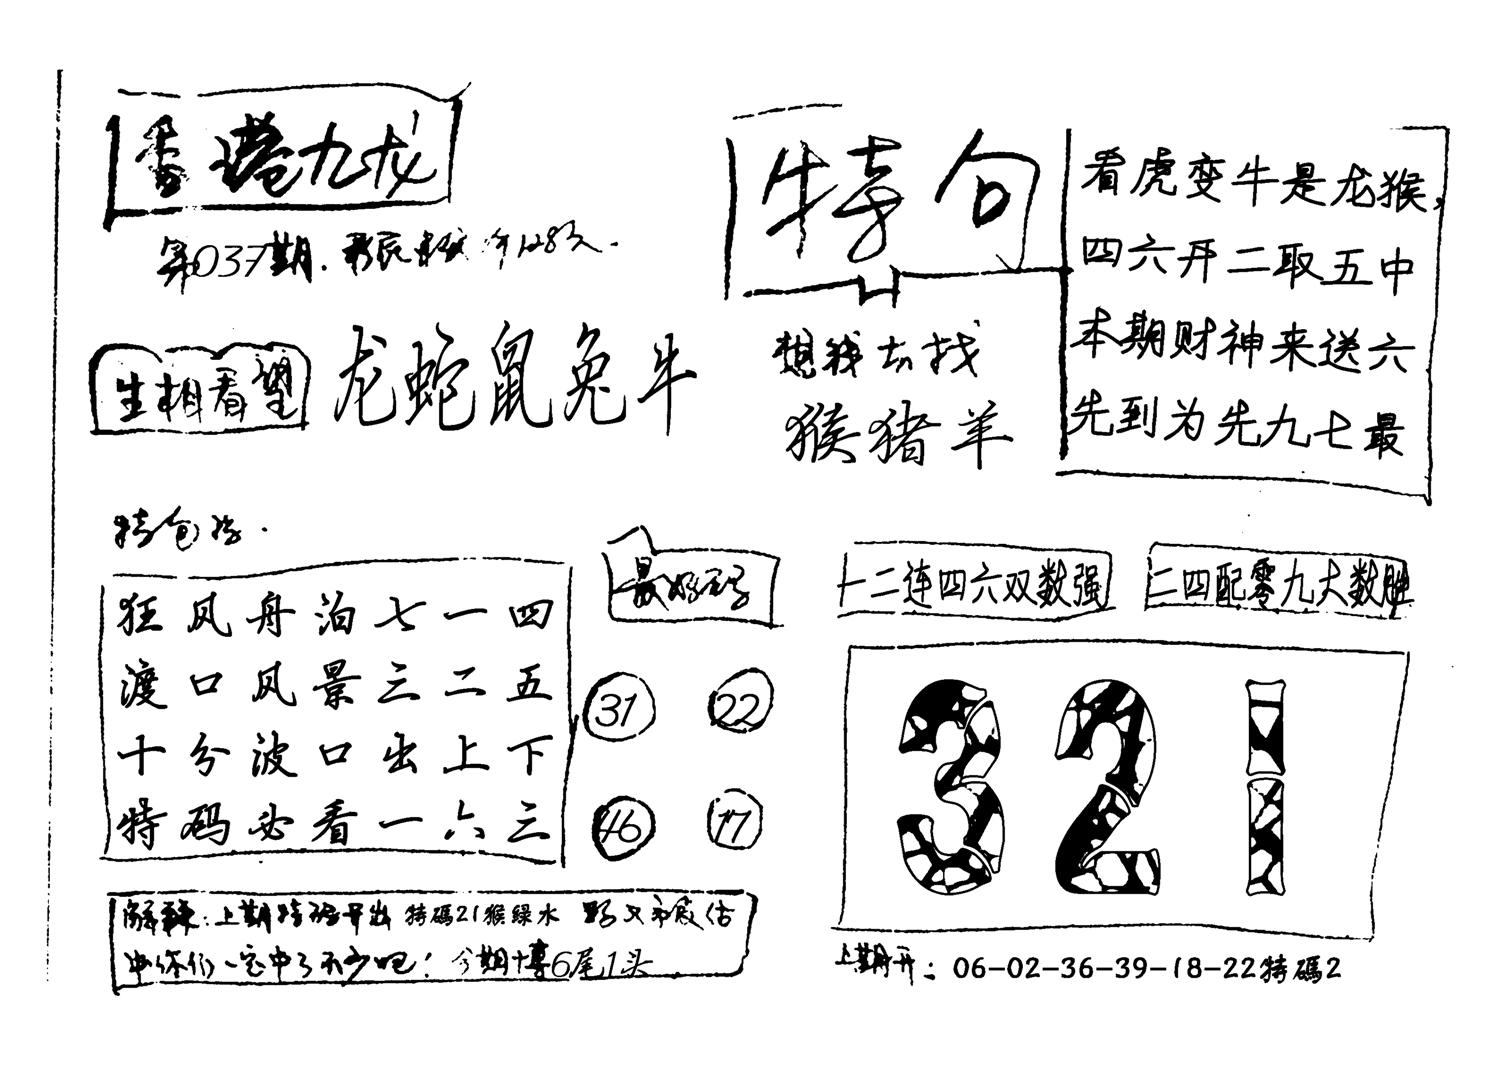 香港九龙
第037期.
生相看望
龙蛇鼠兔牛
特句
想钱去找
猴猪羊
看虎变牛是龙猴,
四六开二取五中
本期财神来送六
先到为先九七最
特包
狂风舟泊七一四
渡口风景三二五
十分波口出上下
特码必看一六三
最好码
31 22
46 17
一二连四六双数强
二四配零九大数胜
321
解释:上期特码开出 特碼21猴綠水
你们一定中了不少吧! 今期博6尾1头
上期开: 06-02-36-39-18-22特碼2